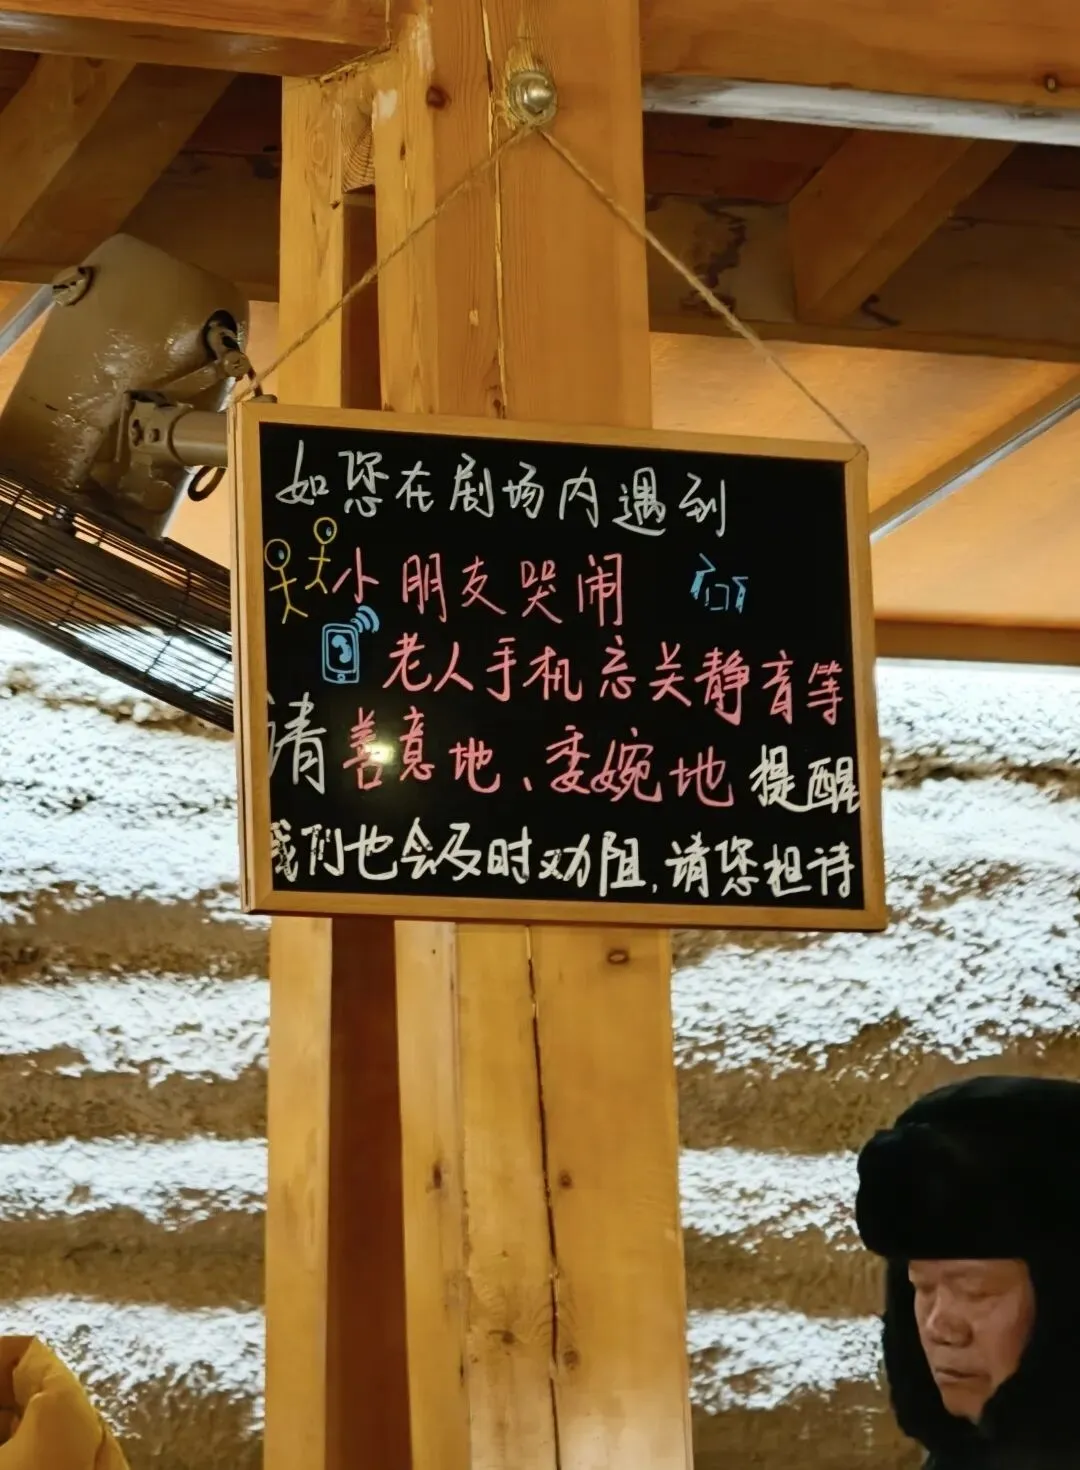 如您在剧场内遇到
小朋友哭闹
老人手机忘关静音等
请善意地、委婉地提醒
我们也会及时劝阻,请您担待